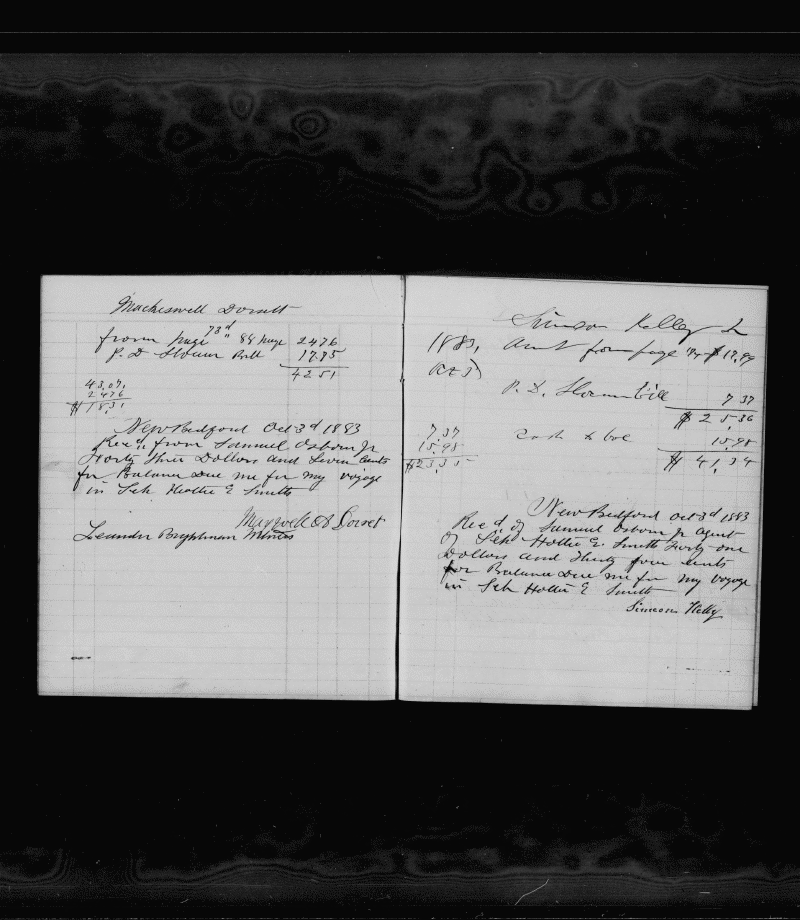 Mackeswell Dorsett
from page 73d " 88 page 2476
P. D. Slocum Bill 1775
4251
43,07,
2476
$ 18,31
New Bedford Oct 3d 1883
Rec'd, from Samuel Osborn Jr
Forty three Dollars and Seven Cents
for Balance Due me for my voyage
in Sch Hattie E Smith
Maxwell Dorset
Leander Brightman Witness
Simeon Kelley
1883, Amt from page $ 17,99
Oct 3
P. D. Slocum Bill 7 37
$ 25,36
7,37
15,98
$23,35
Cash to bal 15,98
$ 41,34
New Bedford Oct 3d 1883
Rec'd of Samuel Osborn Jr Agent
of Sch Hattie E. Smith Forty-one
Dollars and thirty four cents
for Balance Due me for my voyage
in Sch Hattie E Smith
Simeon Kelly